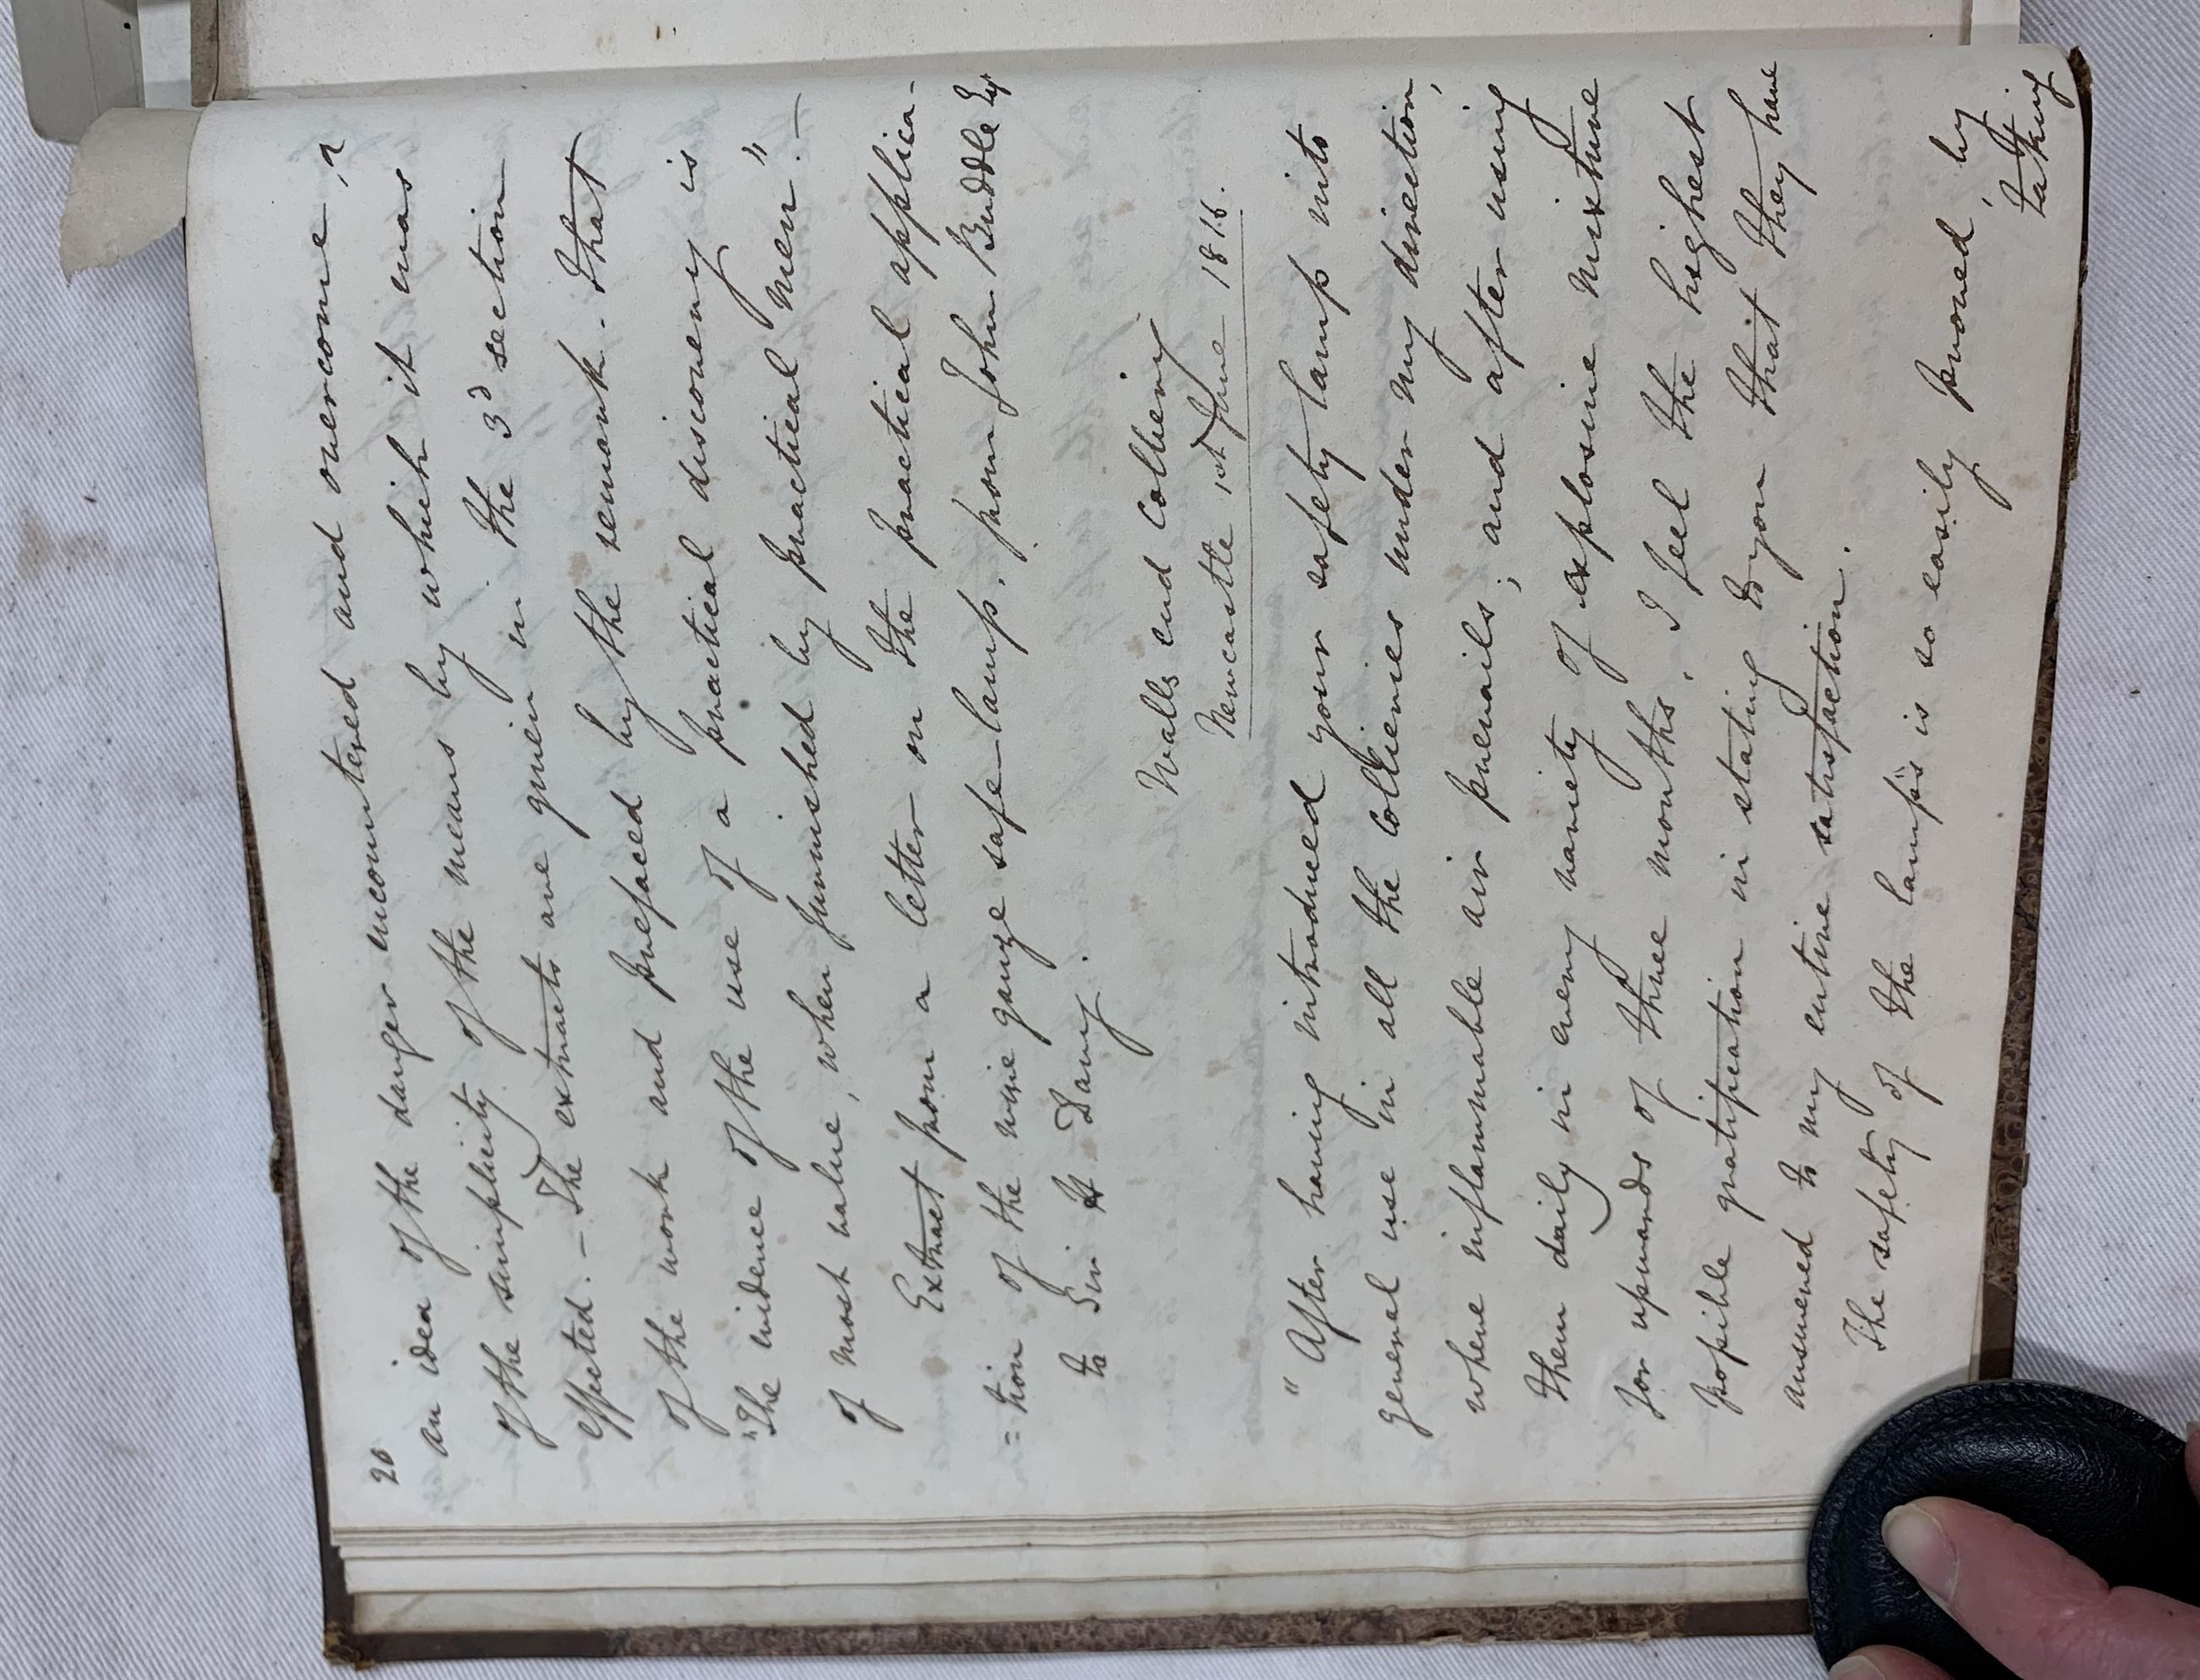 20
an idea of the danger uncountered and overcome, &
of the simplicity of the means by which it was
effected. - The extracts are given in the 3d section
of the work and prefaced by the remark. that
"The evidence of the use of a practical discovery is
of most value, when furnished by practical men". -
Extract from a letter on the practical applica-
=tion of the wire gauze safe-lamp. from John Buddle Esqr
to Sir H Davy.
Walls end Colliery
Newcastle 1st June 1816.
" After having introduced your safety lamp into
general use in all the Collieries under my direction,
where inflammable air prevails; and after using
them daily in every variety of explosive mixture
for upwards of three months. I feel the highest
possible gratification in stating to you that they have
answered to my entire satisfaction.
The safety of the lamps is so easily proved, by
taking